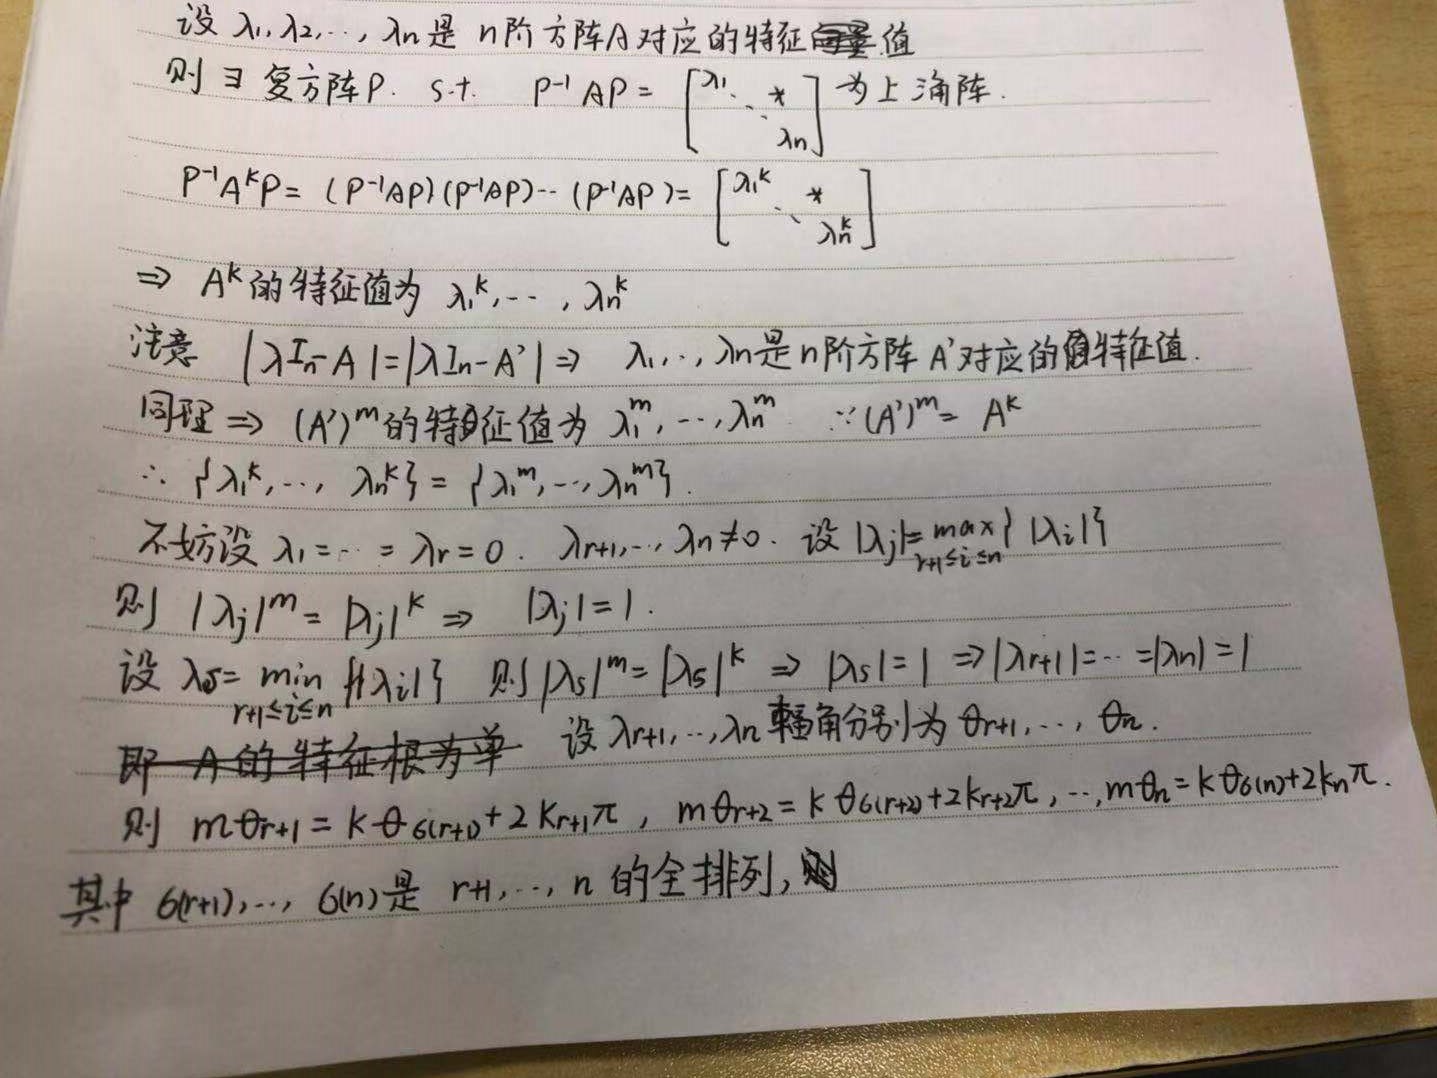 设 λ₁,λ₂,…, λn是 n阶方阵A对应的特征值
则 ∃ 复方阵P. s.t. P⁻¹AP = [λ₁ ⋱ * λn] 为上三角阵.
P⁻¹AᵏP = (P⁻¹AP)(P⁻¹AP)…(P⁻¹AP) = [λ₁ᵏ ⋱ * λnᵏ]
⇒ Aᵏ的特征值为 λ₁ᵏ,…, λnᵏ
注意 |λIn-A|=|λIn-A'| ⇒ λ₁,…, λn是n阶方阵 A'对应的特征值.
同理 ⇒ (A')ᵐ的特征值为 λ₁ᵐ,…,λnᵐ ∵(A')ᵐ= Aᵏ
∴ {λ₁ᵏ,…, λnᵏ} = {λ₁ᵐ,…,λnᵐ}.
不妨设 λ₁=…=λr=0. λr+1,…, λn≠0. 设|λj|=max{|λi|} r+1≤i≤n
则 |λj|ᵐ = |λj|ᵏ ⇒ |λj|=1.
设 λs= min {|λi|} r+1≤i≤n 则|λs|ᵐ=|λs|ᵏ ⇒ |λs|=1 ⇒|λr+1|=…=|λn|=1
即 A的特征根为单 设λr+1,…,λn 辐角分别为 θr+1,…, θn.
则 mθr+1 = kθ6(r+1)+2kr+1π, mθr+2 = kθ6(r+2)+2kr+2π, …, mθn=kθ6(n)+2knπ.
其中 6(r+1),…, 6(n)是 r+1,…, n 的全排列,